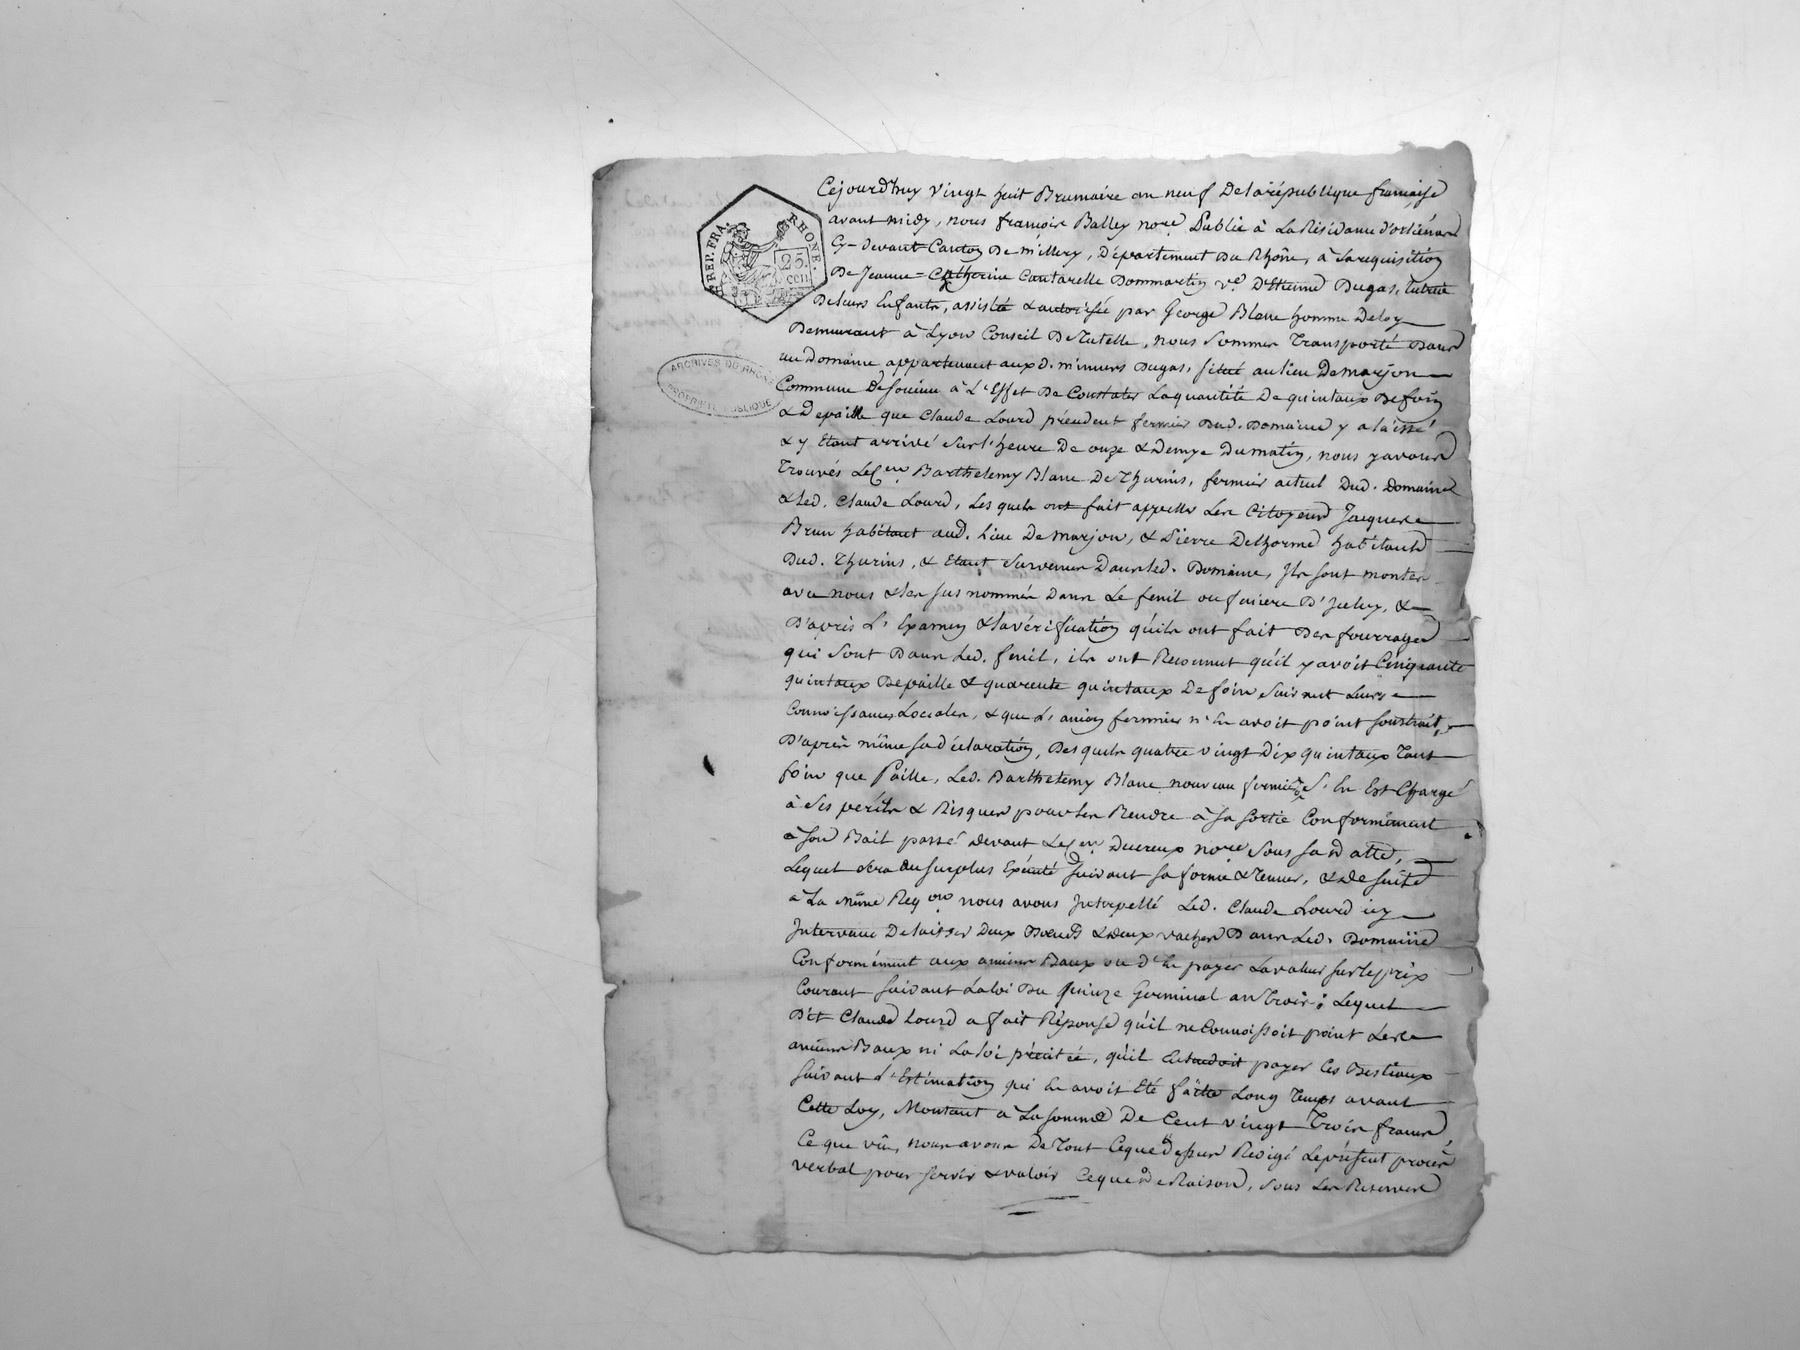 REP. FRA. RHONE.
25.
cen
ARCHIVES DU RHÔNE
PROPRIÉTÉ PUBLIQUE
Cejourd'huy vingt huit Brumaire an neuf De la république française
avant midy, nous françois Balley no.re Public à La Résidance d'orliénas
Cy-devant Canton De millery, Département Du Rhône, à La requisition
De Jeanne-Catherine Cantarelle Dommartin v.e D'Etienne Dugas, tutrice
De leurs Enfants, assistée & autorisée par George Blanc homme De loy
Demeurant à Lyon Conseil De Tutelle, nous sommes Transporté Dans
un Domaine appartenant aux d. mineurs Dugas, situé au lieu De marjon
Commune De soucieu à L'Effet De Constater La quantité De quintaux De foin
& De paille que Claude Lourd précédent fermier Dud. Domaine y a laissé
& y Etant arrivé sur l'heure De onze & Demye Du matin, nous y avons
Trouvés Le C.en Barthelemy Blanc De Thurins, fermier actuel Dud. Domaine
& led. Claude Lourd, Les quels ont fait appeller Les Citoyens Jacques
Brun habitant aud. Lieu De marjon, & Pierre Delhorme habitant
Dud. Thurins, & Etant survenus Dans led. Domaine, Ils sont montés
avec nous & les sus nommés Dans Le fenil ou feniere D'Iceluy, &
D'après L'Examen & la vérification qu'ils ont fait Des fourrages
qui sont Dans Led. fenil, ils ont Reconnut qu'il y avoit Cinquante
quintaux De paille & quarente quintaux De foin suivant Leurs
Connoissances Locales, & que L'ancien fermier n'En avoit point soustrait,
D'après même sa déclaration, Des quels quatre vingt Dix quintaux Tant
foin que Paille, Led. Barthelemy Blanc nouveau fermier s'En Est Chargé
à ses périls & Risques pour Les Rendre à sa sortie Conformément
à son Bail passé devant Le C.en Ducreux no.re sous sa datte,
Lequel sera au surplus Exécuté suivant sa forme & teneur, & de suite
à La même Req.on nous avons Interpellé Led. Claude Lourd icy
Intervenu De laisser Deux Bœufs & Deux vaches Dans Led. Domaine
Conformément aux anciens Baux ou D'En payer La valeur sur le prix
Courant suivant La loi Du quinze Germinal an trois; Lequel
Dit Claude Lourd a fait Réponse qu'il ne Connoissoit point Les
anciens Baux ni La loi précitée, qu'il Entendoit payer Ces Bestiaux
suivant L'Estimation qui En avoit Eté faitte Long Temps avant
Cette Loy, Montant à La somme De Cent vingt Trois francs,
Ce que vû, nous avons De Tout Ceque Dessus Redigé Le présent procès
verbal pour servir & valoir Ceque De Raison, sous Les Reserves